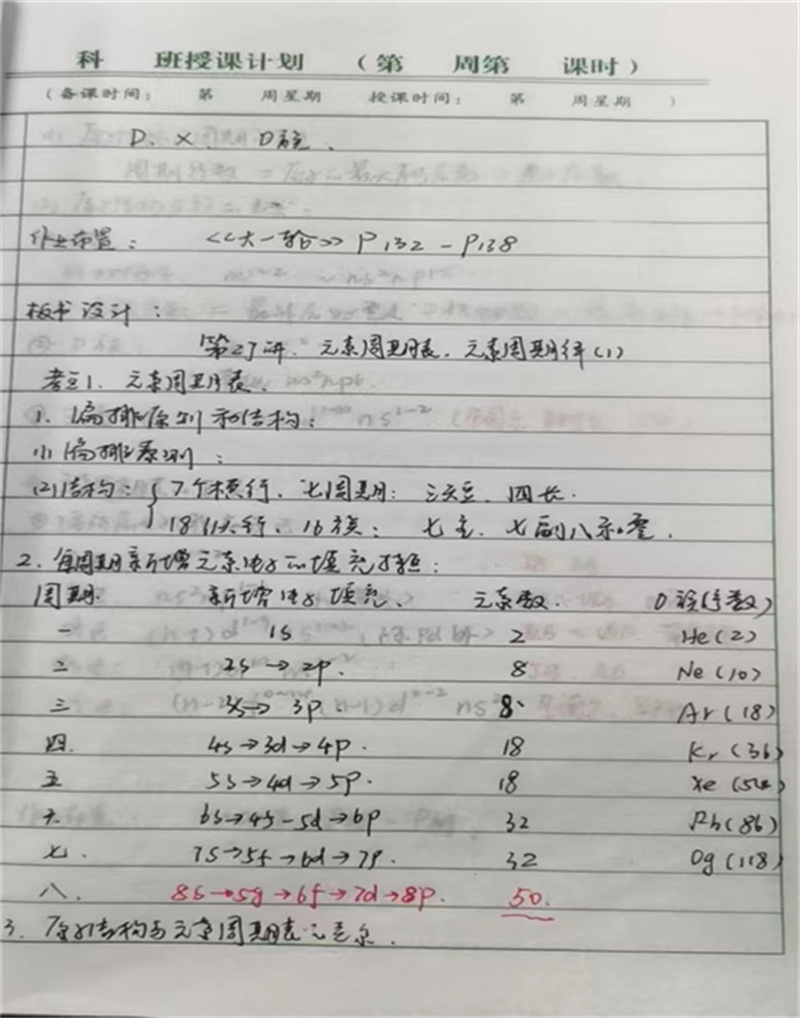 科 班授课计划 (第 周第 课时)
(备课时间: 第 周星期 授课时间: 第 周星期 )
D、X、D
作业布置: 《大一轮》P132-P138
板书设计:
第27讲、元素周期表、元素周期律(1)
考点1、元素周期表、
1、编排原则和结构:
(1)编排原则:
(2)结构:{7个横行、七周期: 三短、四长.
18纵行、16族: 七主、七副八和零.
2、每周期新增元素电子的填充
周期. 新增电子填充、 元素数. 0族(序数)
一 1s 2 He(2)
二 2s→2p. 8 Ne(10)
三 3s→3p. 8 Ar(18)
四. 4s→3d→4p. 18 Kr(36)
五 5s→4d→5p. 18 Xe(54)
六 6s→4f-5d→6p 32 Rn(86)
七. 7s→5f→6d→7p. 32 Og(118)
八. 8s→5g→6f→7d→8p. 50.
3、原子结构与元素周期表之